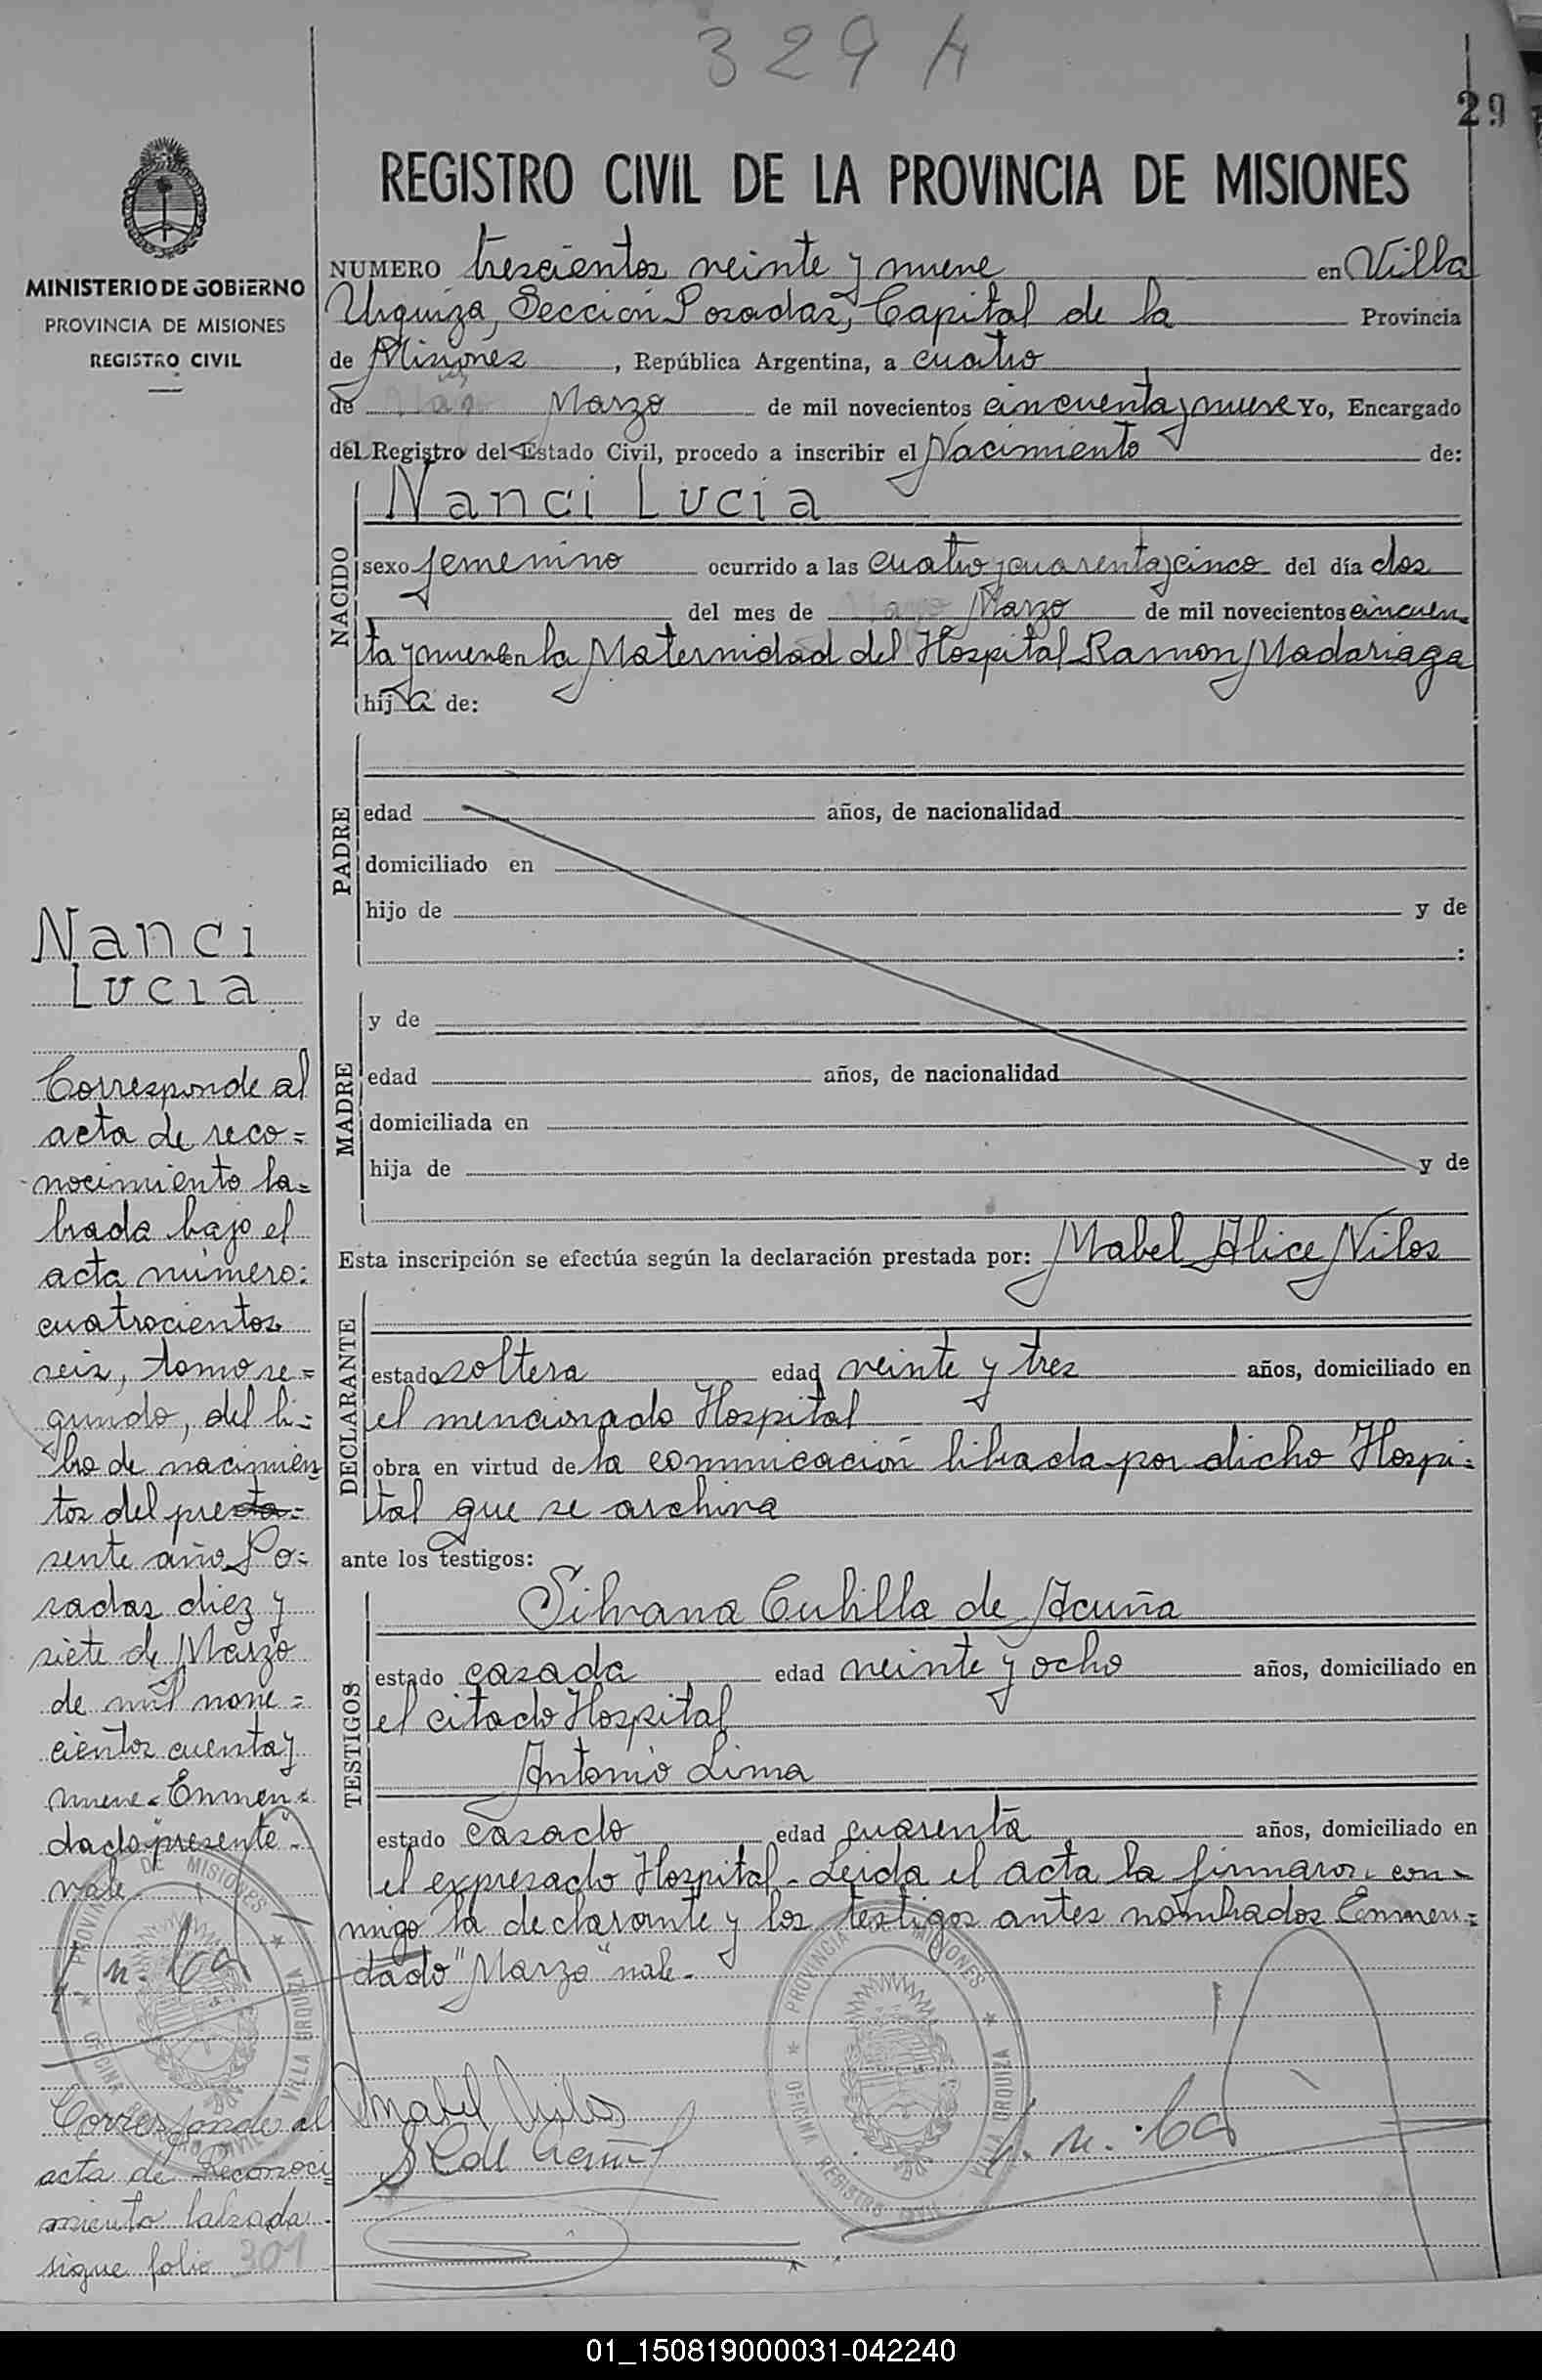 329 A
29
MINISTERIO DE GOBIERNO
PROVINCIA DE MISIONES
REGISTRO CIVIL
REGISTRO CIVIL DE LA PROVINCIA DE MISIONES
NUMERO trescientos veinte y nueve en Villa
Urquiza, Sección Posadas, Capital de la Provincia
de Misiones, República Argentina, a cuatro
de Marzo de mil novecientos cincuenta y nueve Yo, Encargado
del Registro del Estado Civil, procedo a inscribir el Nacimiento de:
NACIDO
Nanci Lucia
sexo femenino ocurrido a las cuatro y cuarenta y cinco del día dos
del mes de Marzo de mil novecientos cincuen
ta y nueve en la Maternidad del Hospital Ramon Madariaga
hija de:
PADRE
edad años, de nacionalidad
domiciliado en
hijo de y de
:
MADRE
y de
edad años, de nacionalidad
domiciliada en
hija de y de
Esta inscripción se efectúa según la declaración prestada por: Mabel Alice Nilos
DECLARANTE
estado soltera edad veinte y tres años, domiciliado en
el mencionado Hospital
obra en virtud de la comunicación librada por dicho Hospi=
tal que se archiva
ante los testigos:
TESTIGOS
Silvana Cubilla de Acuña
estado casada edad veinte y ocho años, domiciliado en
el citado Hospital
Antonio Lima
estado casado edad cuarenta años, domiciliado en
el expresado Hospital - Leida el acta la firmaron con-
migo la declarante y los testigos antes nombrados Enmen=
dado "Marzo" vale.-
Mabel Nilos
S C de Acuña
PROVINCIA DE MISIONES
OFICINA REGISTRO CIVIL
VILLA URQUIZA
Nanci
Lucia
Corresponde al
acta de reco=
nocimiento la=
brada bajo el
acta número:
cuatrocientos
seis, tomo se=
gundo, del li=
bro de nacimien
tos del preta=
sente año Po=
sadas diez y
siete de Marzo
de mil nove=
cientos cuenta y
nueve - Enmen=
dado "presente"
vale
PROVINCIA DE MISIONES
VILLA URQUIZA
Corresponde al
acta de Reconoci
miento labrada
sigue folio 301
01_150819000031-042240